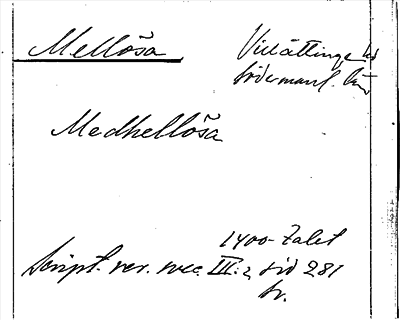 Mellösa Villåttinge hd
Södermanl. län
Medhellösa
1400-talet
Script. rer. svec. III:2 sid 281
tr.